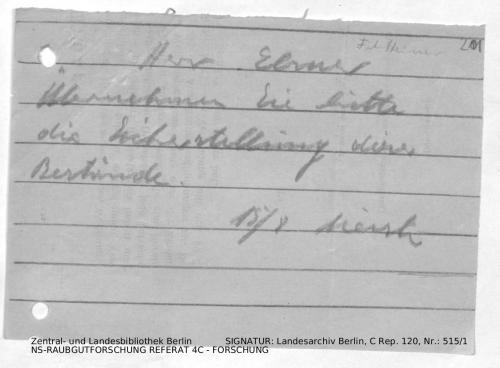 201
Herr Elsner
Übernehmen Sie bitte
die Sicherstellung dieser
Bestände.
15/8
Zentral- und Landesbibliothek Berlin SIGNATUR: Landesarchiv Berlin, C Rep. 120, Nr.: 515/1
NS-RAUBGUTFORSCHUNG REFERAT 4C - FORSCHUNG